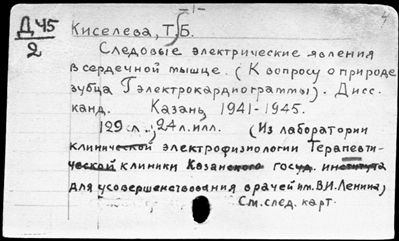 -1-
4
Д 45
2
Киселева, Т.Б.
Следовые электрические явления
в сердечной мышце. (К вопросу о природе
зубца Т электрокардиограммы). Дисс.
канд. Казань, 1941-1945.
129 л., 24 л. илл. (Из лаборатории
клинической электрофизиологии Терапевти-
ческой клиники Казанского госуд. института
для усовершенствования врачей им. В.И. Ленина)
См. след. карт.